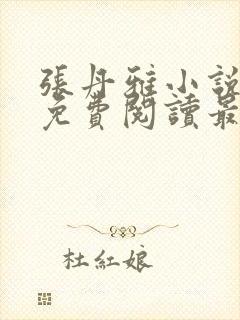 張丹雅小說
免費閱讀最
杜紅娘